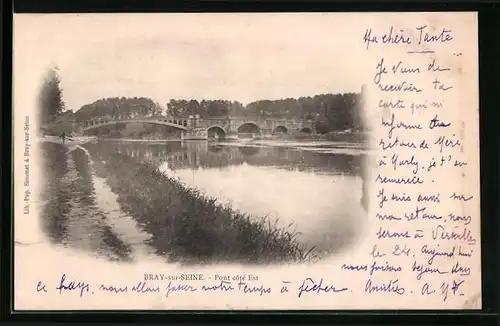 Ma chère Tante
Je viens de
recevoir ta
carte qui m'
informe du
retour de Mère
à Marly, je t'en
remercie.
Je suis aussi sur
mon retour, nous
serons à Versailles
le 24. Aujourd'hui
nous faisons séjour dans
ce pays, nous allons passer notre temps à pêcher. Amitiés.
BRAY-sur-SEINE. - Pont côté Est
Lib.-Pap. Simonnet à Bray-sur-Seine